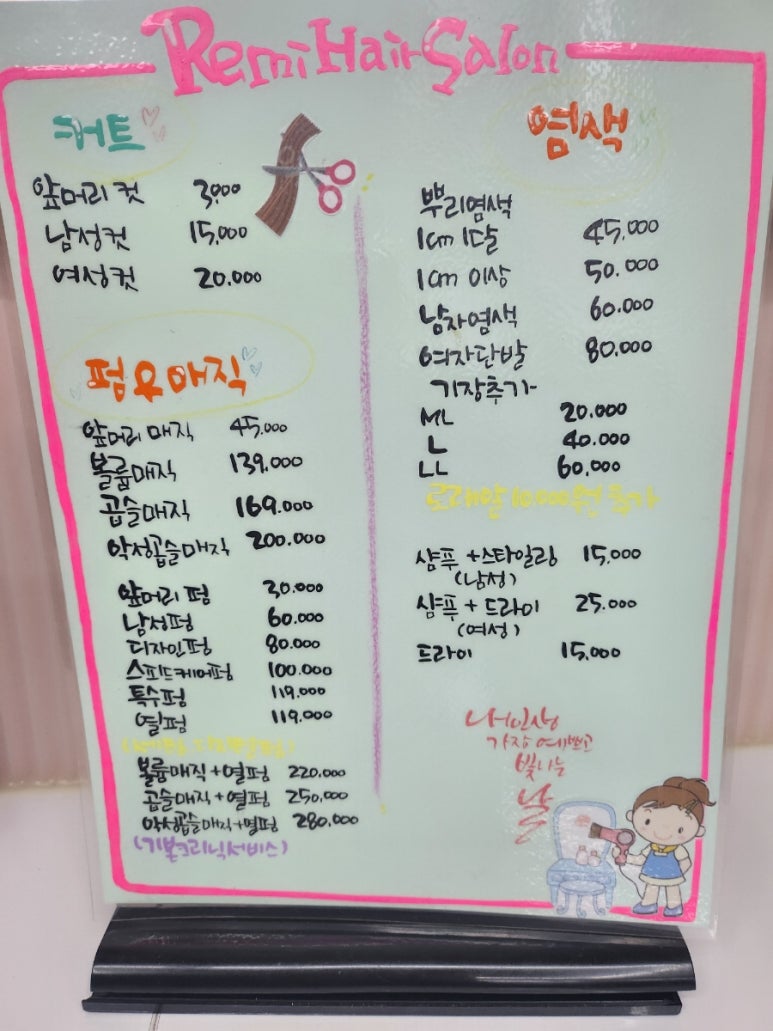 Remi Hair Salon
커트
앞머리 컷 3.000
남성컷 15.000
여성컷 20.000
펌 & 매직
앞머리 매직 45.000
볼륨매직 139.000
곱슬매직 169.000
악성곱슬매직 200.000
앞머리 펌 30.000
남성펌 60.000
디자인펌 80.000
스피드케어펌 100.000
특수펌 119.000
열펌 119.000
볼륨매직+열펑 220.000
곱슬매직+열펑 250.000
악성곱슬매직+열펑 280.000
(기본크리닉서비스)
염색
뿌리염색
1cm 1달 45.000
1cm 이상 50.000
남자염색 60.000
여자단발 80.000
기장추가
ML 20.000
L 40.000
LL 60.000
10.000원 추가
샴푸+스타일링 15.000
(남성)
샴푸+드라이 25.000
(여성)
드라이 15.000
내인생
가장 예쁘고
빛나는
날